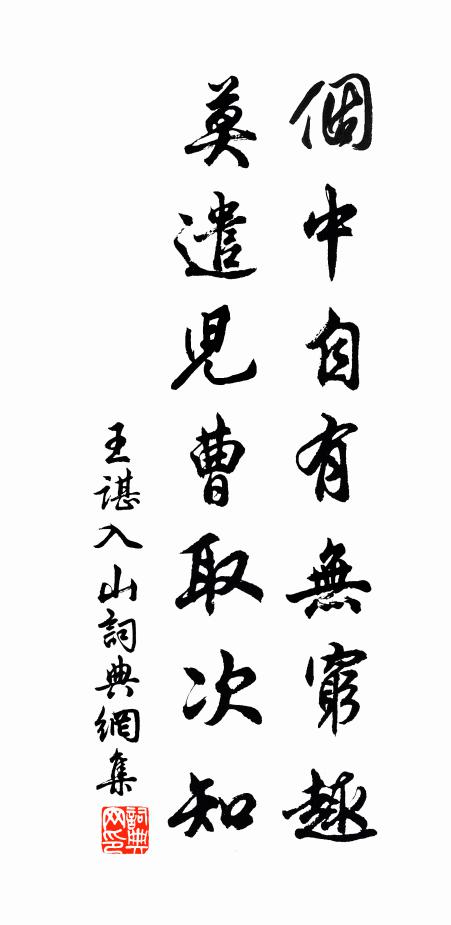 個中自有無窮趣
莫遣兒曹取次知
王諶入山詞典網集
詞典網印